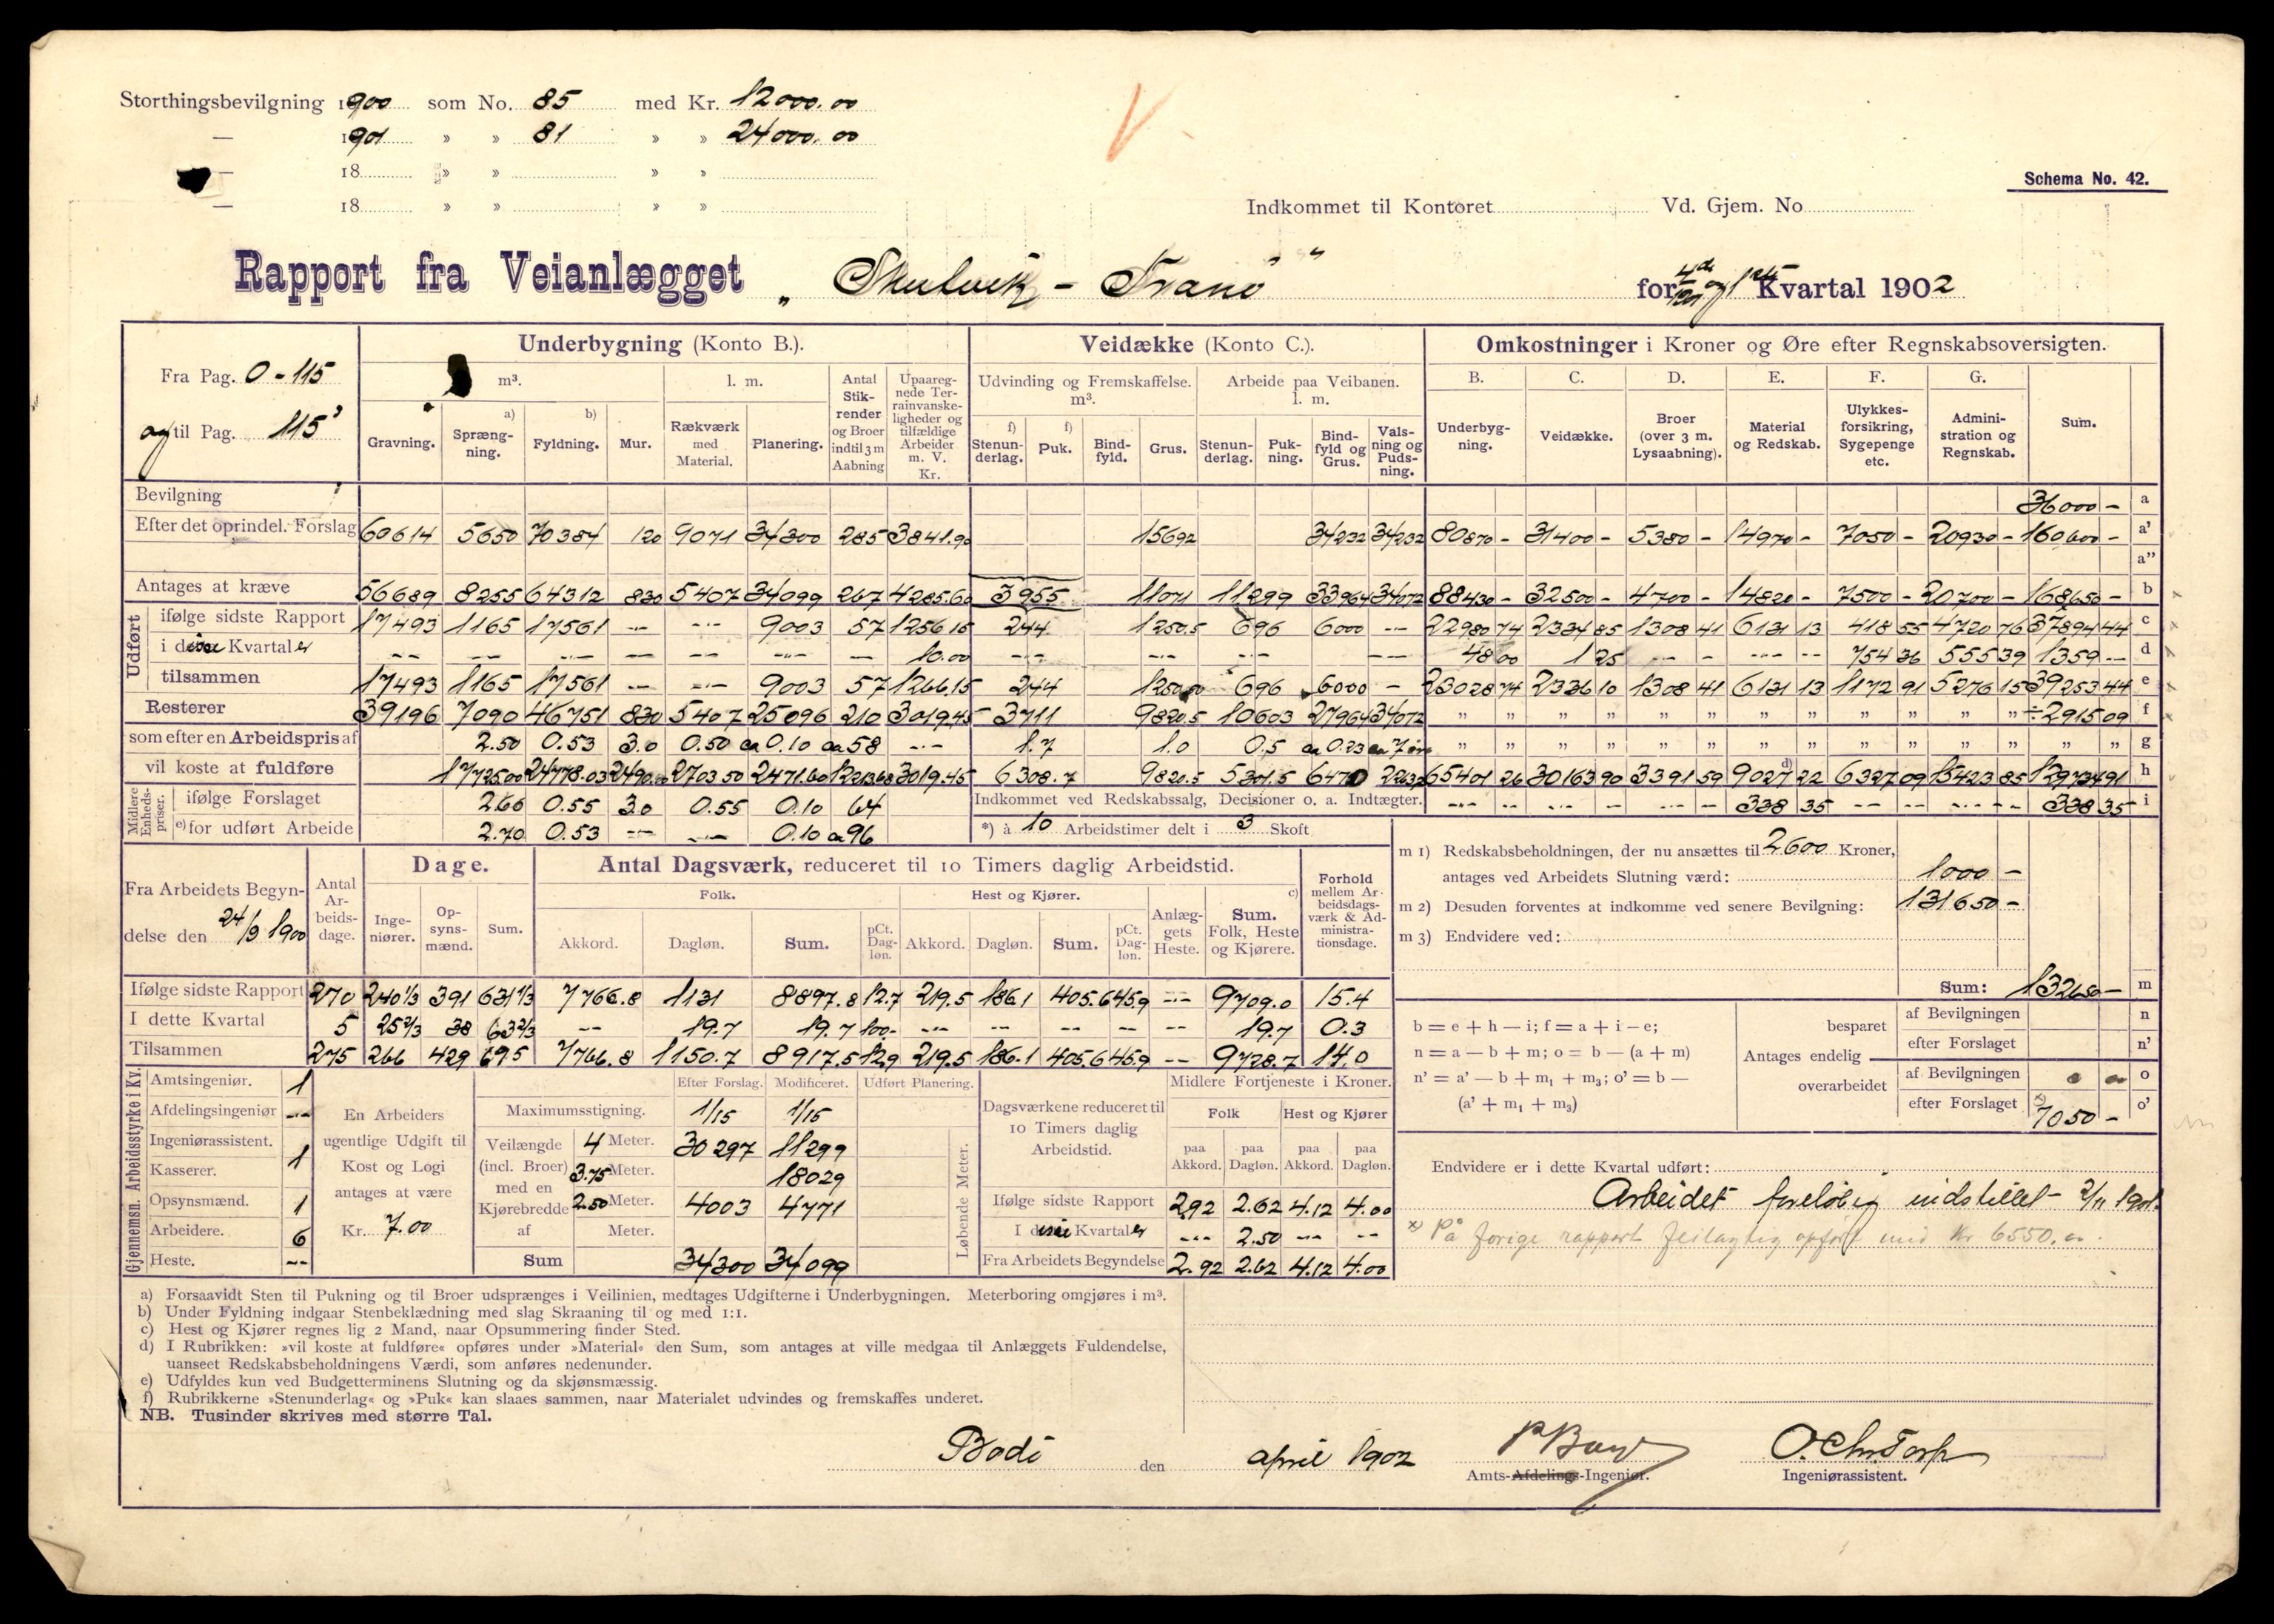 Storthingsbevilgning 1900 som No. 85 med Kr. 12000.00
— 1901 » » 81 » » 24000.00
— 18 » » » »
— 18 » » » »
Schema No. 42.
Indkommet til Kontoret Vd. Gjem. No
Rapport fra Veianlægget „Skutvik - Tranö" for 4de 1901 og 1ste Kvartal 1902
Fra Pag. 0 - 115
og til Pag. 115³
Underbygning (Konto B.). Veidække (Konto C.). Omkostninger i Kroner og Øre efter Regnskabsoversigten.
m³. l. m. Antal Stikrender og Broer indtil 3 m Aabning Upaaregnede Terrainvanskeligheder og tilfældige Arbeider m. V. Kr. Udvinding og Fremskaffelse. m³. Arbeide paa Veibanen. l. m. B. C. D. E. F. G. Sum.
Gravning. a) Sprængning. b) Fyldning. Mur. Rækværk med Material. Planering. f) Stenunderlag. f) Puk. Bindfyld. Grus. Stenunderlag. Pukning. Bindfyld og Grus. Valsning og Pudsning. Underbygning. Veidække. Broer (over 3 m. Lysaabning). Material og Redskab. Ulykkesforsikring, Sygepenge etc. Administration og Regnskab.
Bevilgning 36000 - a
Efter det oprindel. Forslag 60614 5650 70384 120 9071 34300 285 3841.90 15692 34232 34232 80870 - 31400 - 5380 - 14970 - 7050 - 20930 - 160600 - a'
a"
Antages at kræve 56689 8255 64312 830 5407 34099 267 4285.60 3955 11071 11299 33964 34072 88430 - 32500 - 4700 - 14820 - 7500 - 20700 - 168650 - b
Udført ifølge sidste Rapport 17493 1165 17561 -- -- 9003 57 1256.15 244 1250.5 696 6000 -- 22980 74 2334 85 1308 41 6131 13 418 55 4720 76 37894 44 c
i disse Kvartaler -- -- -- -- -- -- -- 10.00 -- -- -- 48 00 1 25 -- - -- -- 754 36 555 39 1359 -- d
tilsammen 17493 1165 17561 -- -- 9003 57 1266.15 244 1250.50 696 6000 - 23028 74 2336 10 1308 41 6131 13 1172 91 5276 15 39253 44 e
Resterer 39196 7090 46751 830 5407 25096 210 3019.45 3711 9820.5 10603 27964 34072 " " " " " " " " " " " " ÷2915 09 f
som efter en Arbeidspris af 2.50 0.53 3.0 0.50 ca 0.10 ca 58 -- 1.7 1.0 0.5 ca 0.23 ca 7 øre " " " " " " " " " " " " " " g
vil koste at fuldføre 17725.00 24778.03 2490.00 2703.50 2471.60 12213.68 3019.45 6308.7 9820.5 5301.5 6470 2263 65401 26 30163 90 3391 59 d) 9027 22 6327 09 15423 85 129734 91 h
Midlere Enhedspriser. ifølge Forslaget 2.60 0.55 3.0 0.55 0.10 64 Indkommet ved Redskabssalg, Decisioner o. a. Indtægter. -- -- -- -- -- - 338 35 -- -- -- -- 338 35 i
e) for udført Arbeide 2.70 0.53 -- -- 0.10 ca 96 *) à 10 Arbeidstimer delt i 3 Skoft
Fra Arbeidets Begyndelse den 24/9 1900
Antal Arbeidsdage. Dage. Antal Dagsværk, reduceret til 10 Timers daglig Arbeidstid. Forhold mellem Arbeidsdagsværk & Administrationsdage.
Folk. Hest og Kjører. c)
Ingeniører. Opsynsmænd. Sum. Akkord. Dagløn. Sum. pCt. Dagløn. Akkord. Dagløn. Sum. pCt. Dagløn. Anlæggets Heste. Sum. Folk, Heste og Kjørere.
Ifølge sidste Rapport 270 240 1/3 391 631 1/3 7766.8 1131 8897.8 12.7 219.5 186.1 405.6 45.9 -- 9709.0 15.4
I dette Kvartal 5 25 2/3 38 63 2/3 -- 19.7 19.7 100.- -- -- -- -- -- 19.7 0.3
Tilsammen 275 266 429 695 7766.8 1150.7 8917.5 12.9 219.5 186.1 405.6 45.9 -- 9728.7 14.0
m 1) Redskabsbeholdningen, der nu ansættes til 2600 Kroner,
antages ved Arbeidets Slutning værd: 1000 -
m 2) Desuden forventes at indkomme ved senere Bevilgning: 131650 -
m 3) Endvidere ved:
Sum: 132650 - m
b = e + h — i; f = a + i — e;
n = a — b + m; o = b — (a + m)
n' = a' — b + m₁ + m₃; o' = b —
(a' + m₁ + m₃)
Antages endelig besparet af Bevilgningen n
efter Forslaget n'
overarbeidet af Bevilgningen o oo o
efter Forslaget x) 7050 - o'
Gjennemsn. Arbeidsstyrke i Kv.
Amtsingeniør. 1
Afdelingsingeniør --
Ingeniørassistent. 1
Kasserer.
Opsynsmænd. 1
Arbeidere. 6
Heste. --
En Arbeiders ugentlige Udgift til Kost og Logi antages at være Kr. 7.00
Efter Forslag. Modificeret. Udført Planering.
Maximumsstigning. 1/15 1/15
Veilængde (incl. Broer) med en Kjørebredde af
4 Meter. 30297 11299
3.75 Meter. 18029
2.50 Meter. 4003 4771
Meter.
Sum 34300 34099
Løbende Meter.
Dagsværkene reduceret til 10 Timers daglig Arbeidstid. Midlere Fortjeneste i Kroner.
Folk Hest og Kjører
paa Akkord. paa Dagløn. paa Akkord. paa Dagløn.
Ifølge sidste Rapport 2.92 2.62 4.12 4.00
I disse Kvartaler -- 2.50 -- --
Fra Arbeidets Begyndelse 2.92 2.62 4.12 4.00
Endvidere er i dette Kvartal udført:
Arbeidet foreløbig indstillet 2/11 1901.
x) På forige rapport feilagtig opført med Kr 6550.00.
a) Forsaavidt Sten til Pukning og til Broer udsprænges i Veilinien, medtages Udgifterne i Underbygningen. Meterboring omgjøres i m³.
b) Under Fyldning indgaar Stenbeklædning med slag Skraaning til og med 1:1.
c) Hest og Kjører regnes lig 2 Mand, naar Opsummering finder Sted.
d) I Rubrikken: »vil koste at fuldføre« opføres under »Material« den Sum, som antages at ville medgaa til Anlæggets Fuldendelse,
uanseet Redskabsbeholdningens Værdi, som anføres nedenunder.
e) Udfyldes kun ved Budgetterminens Slutning og da skjønsmæssig.
f) Rubrikkerne »Stenunderlag« og »Puk« kan slaaes sammen, naar Materialet udvindes og fremskaffes underet.
NB. Tusinder skrives med større Tal.
Bodö den april 1902
Amts-Afdelings-Ingeniør.
O. Chr. Torp
Ingeniørassistent.